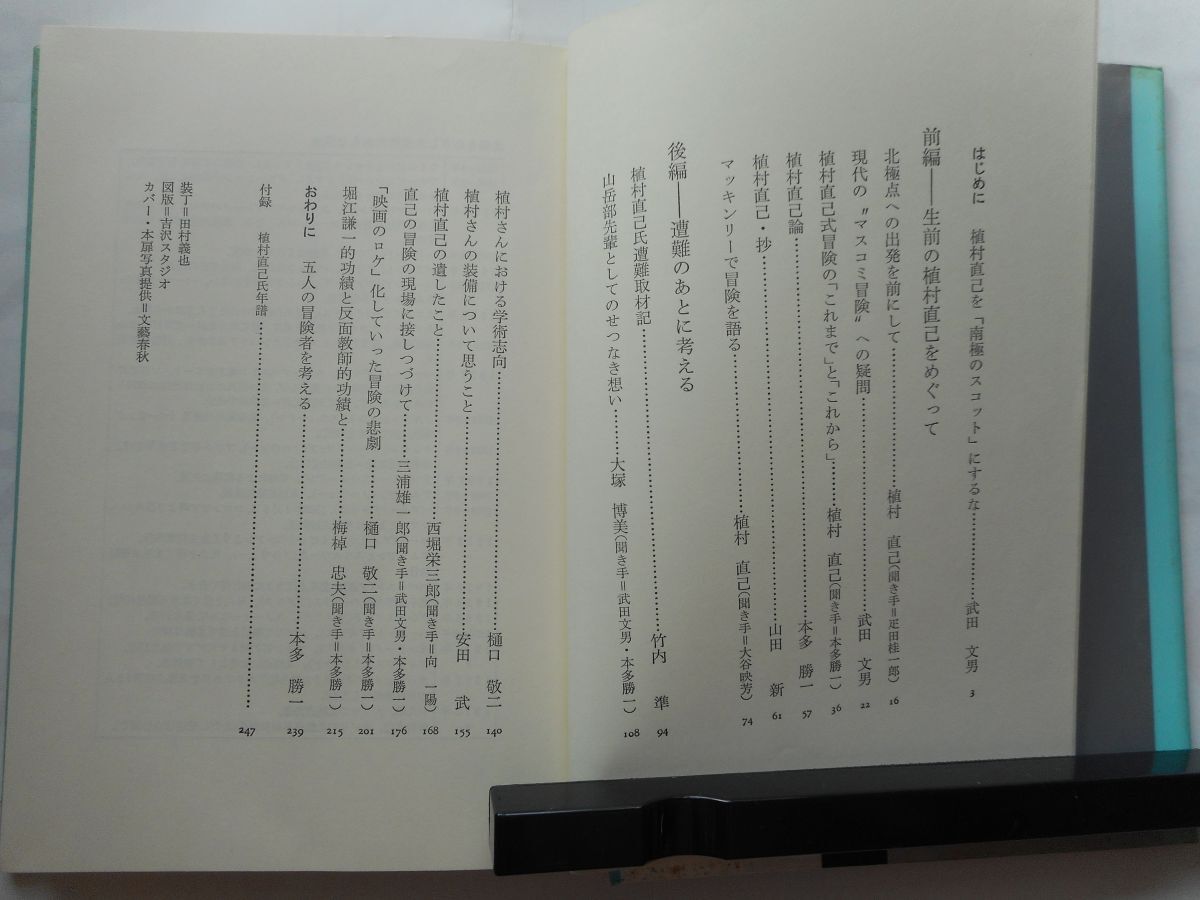 はじめに　植村直己を「南極のスコット」にするな……………武田　文男　3
前編――生前の植村直己をめぐって
北極点への出発を前にして……………植村　直己（聞き手＝疋田桂一郎）　16
現代の〝マスコミ冒険〟への疑問……………武田　文男　22
植村直己式冒険の「これまで」と「これから」……………植村　直己（聞き手＝本多勝一）　36
植村直己論……………本多　勝一　57
植村直己・抄……………山田　新　61
マッキンリーで冒険を語る……………植村　直己（聞き手＝大谷映芳）　74
後編――遭難のあとに考える
植村直己氏遭難取材記……………竹内　準　94
山岳部先輩としてのせつなき想い……………大塚　博美（聞き手＝武田文男・本多勝一）　108
植村さんにおける学術志向……………樋口　敬二　140
植村さんの装備について思うこと……………安田　武　155
植村直己の遺したこと……………西堀栄三郎（聞き手＝向　一陽）　168
直己の冒険の現場に接しつづけて……………三浦雄一郎（聞き手＝武田文男・本多勝一）　176
「映画のロケ」化していった冒険の悲劇……………樋口　敬二（聞き手＝本多勝一）　201
堀江謙一的功績と反面教師的功績と……………梅棹　忠夫（聞き手＝本多勝一）　215
おわりに　五人の冒険者を考える……………本多　勝一　239
付録　植村直己氏年譜……………247
装丁＝田村義也
図版＝吉沢スタジオ
カバー・本扉写真提供＝文藝春秋